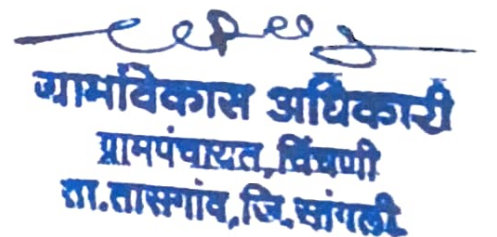 ग्रामविकास अधिकारी
ग्रामपंचायत, चिंचणी
ता. तासगांव, जि. सांगली.